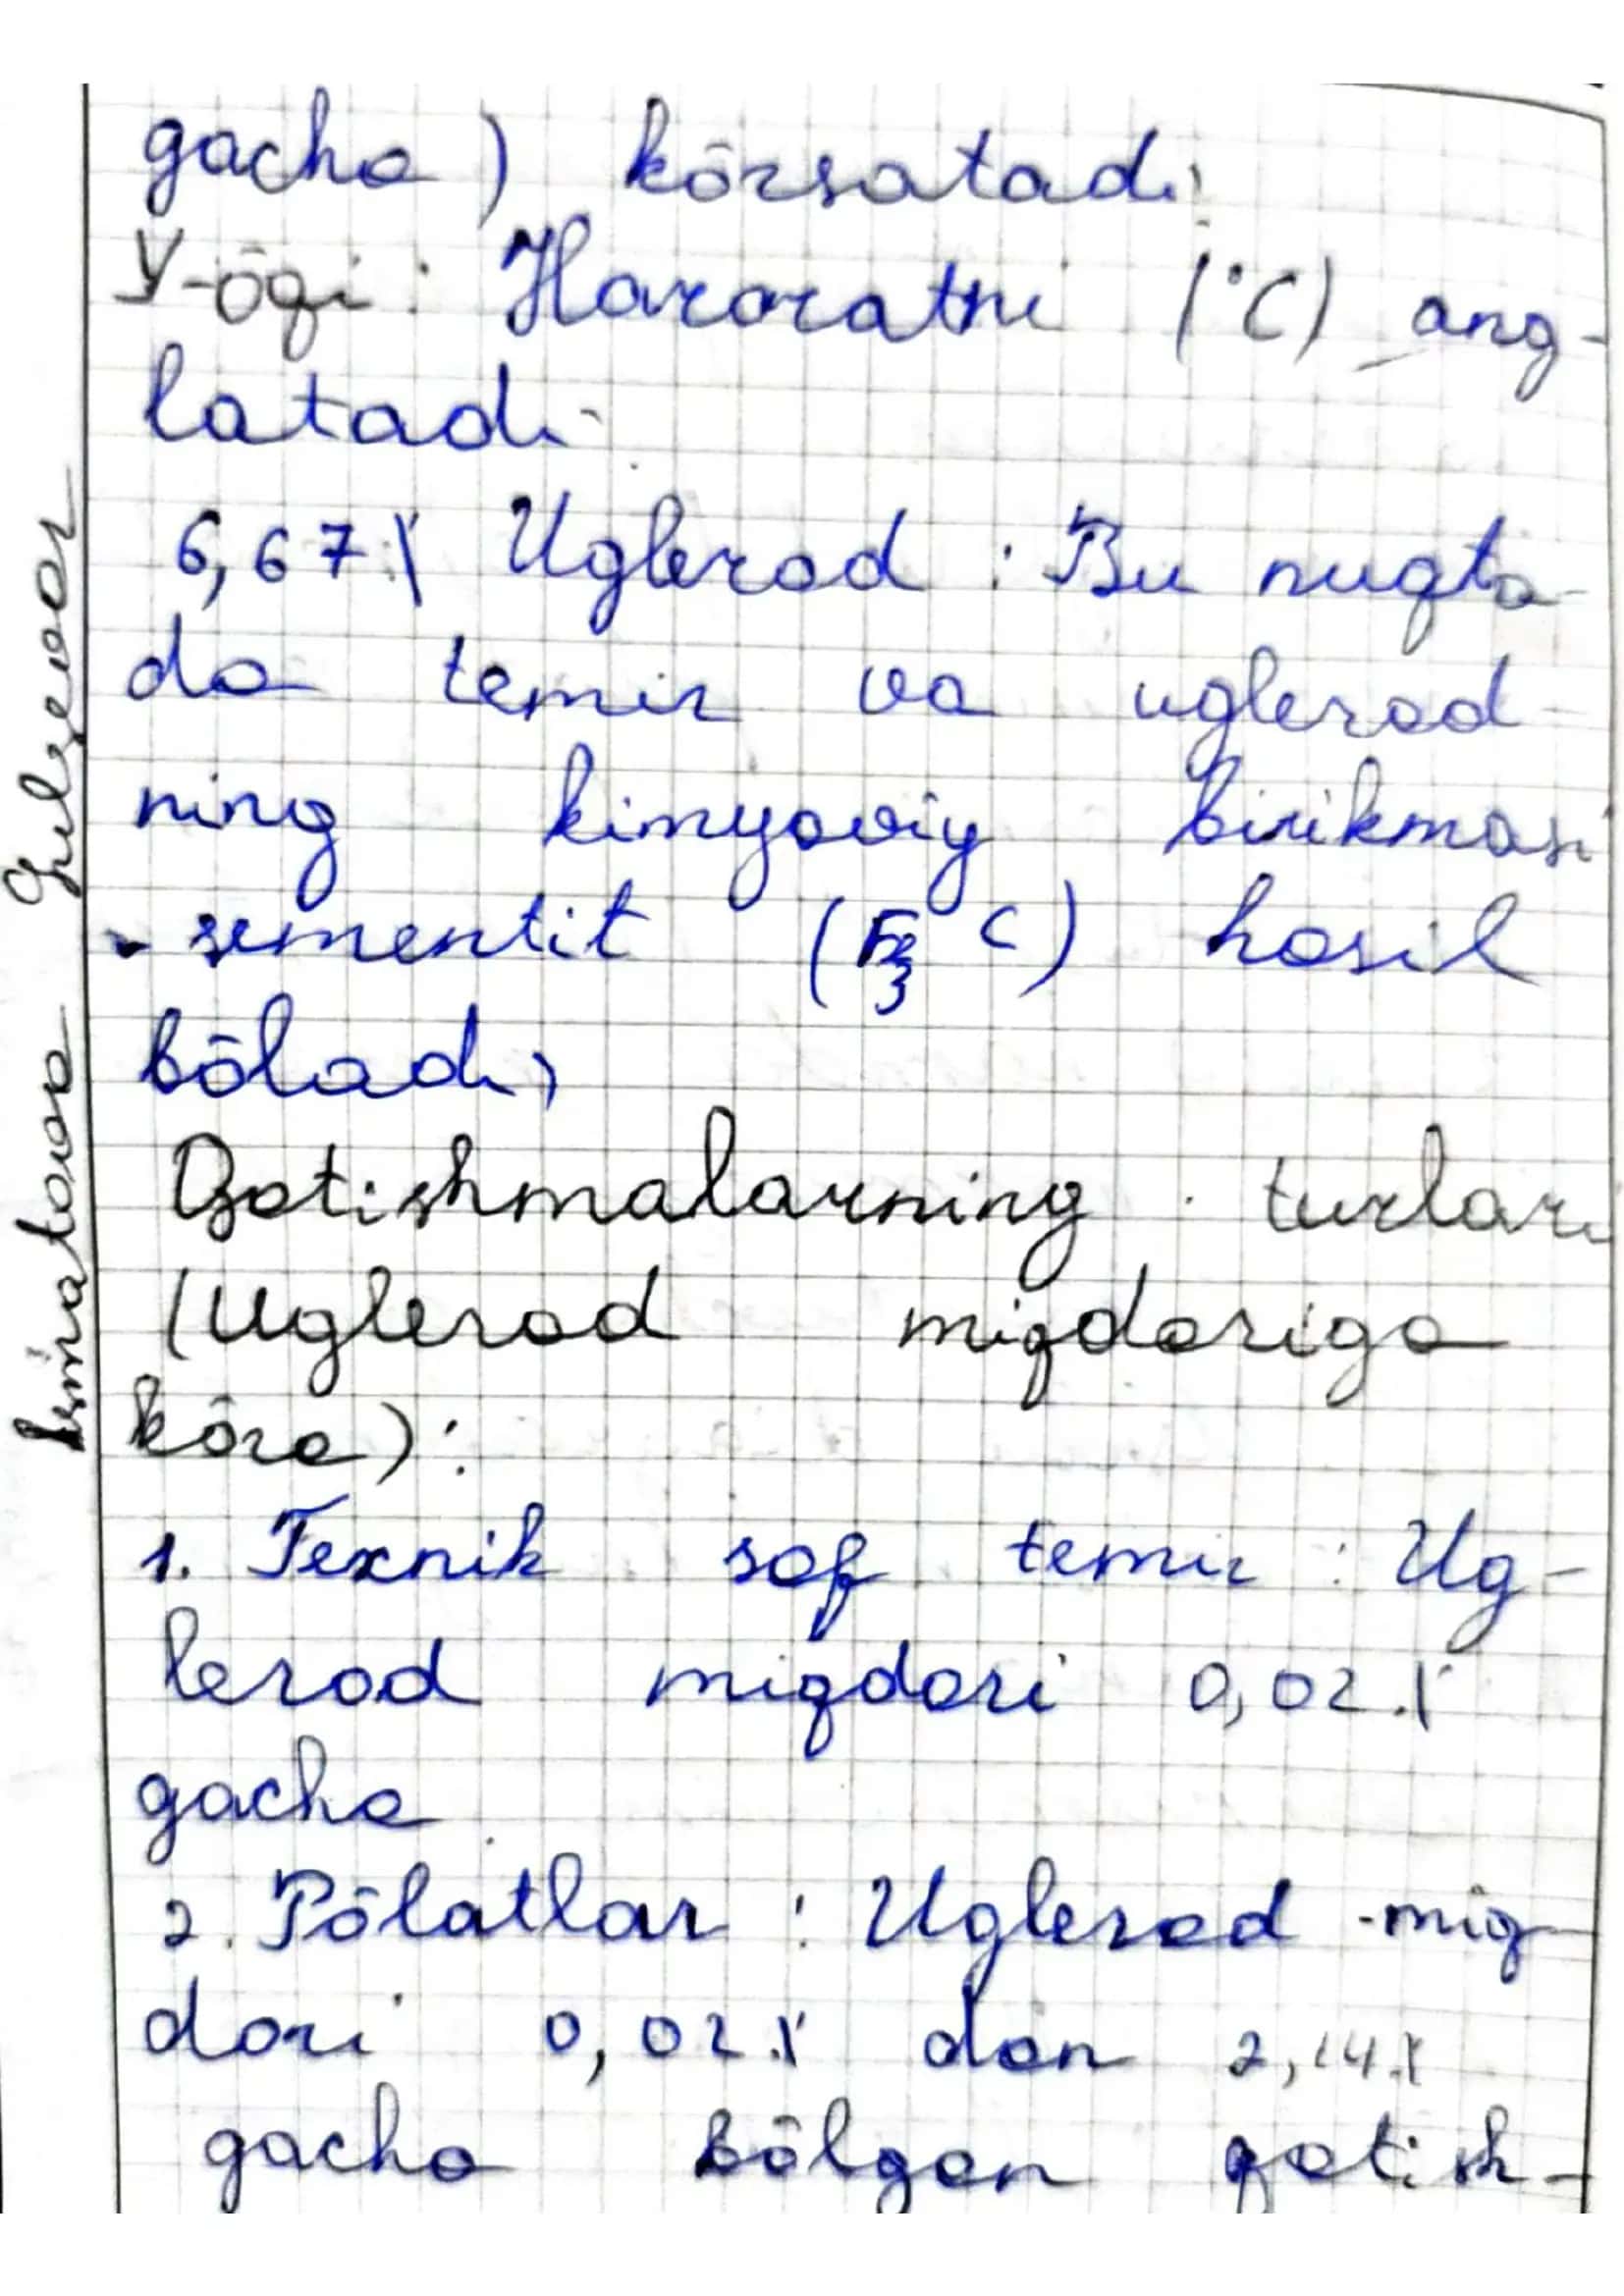 gacha) kōrsatadi
Y-ōqi: Haroratni (°C) ang-
latadi
6,67% Uglerod : Bu nuqta-
da temir va uglerod
ning kimyoviy birikmasi
- sementit (Fe₃ C) hosil
bōladi,
Qotishmalarning turlari
(Uglerod miqdoriga
kōra):
1. Texnik sof temir : Ug-
lerod miqdori 0,02%
gacha
2. Pōlatlar : Uglerod miq
dori 0,02% dan 2,14%
gacha bōlgan qotish-
Ismatova Gulzevar